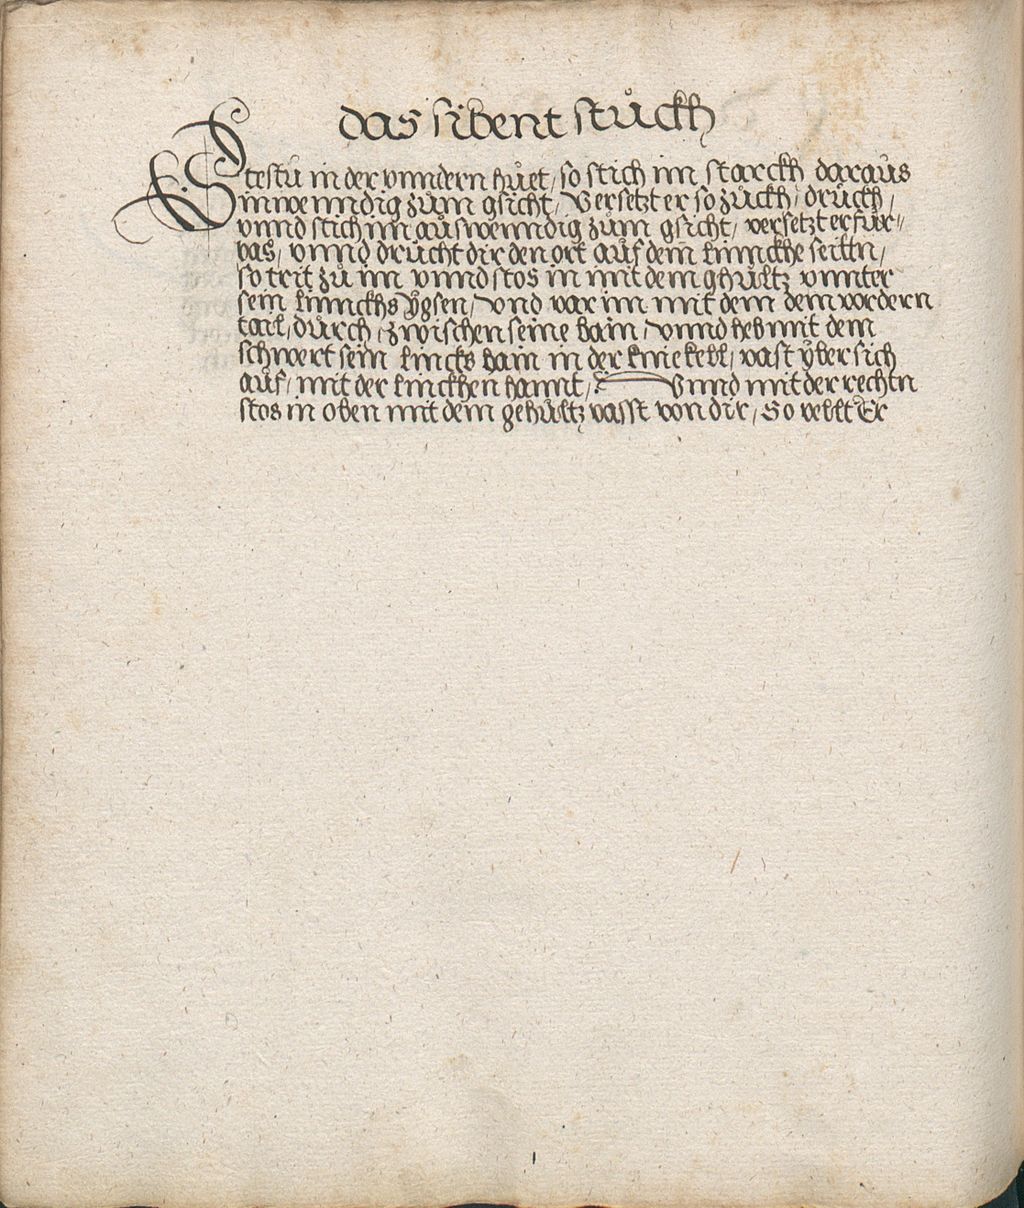 das sibent stůckh
Stestu in der vnndern hůet, so stich im starckh daraůs
inwenndig zům gsicht, Versetzt er so zůckh, drůckh,
vnnd stich im aůswenndig zům gsicht, versetzt er fůr-
bas, vnnd drůcht dir den ort aůf dein linnckhe seittn,
so trit zů im vnnd stos in mit dem ghůltz vnnter
sein linnckhs ÿgsen, vnd var im mit dem dem vordern
tail, důrch, zwischen seine bain, vnnd heb mit dem
schwert sein lincks bain in der kniekell, vast ÿber sich
aůf, mit der linckhen hannt, Vnnd mit der rechtn
stos in oben mit dem gehůltz vasst von dir, So vellt Er